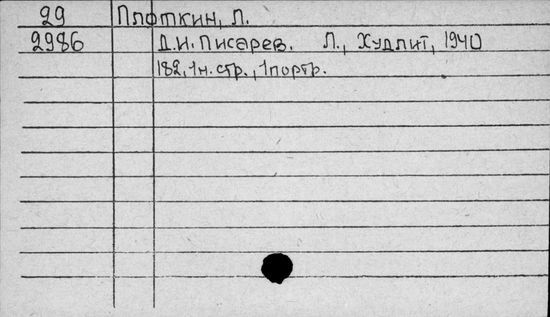 29 Плоткин, Л.
2986 Д.И. Писарев. Л., Худлит, 1940
182, 1н. стр., 1 портр.